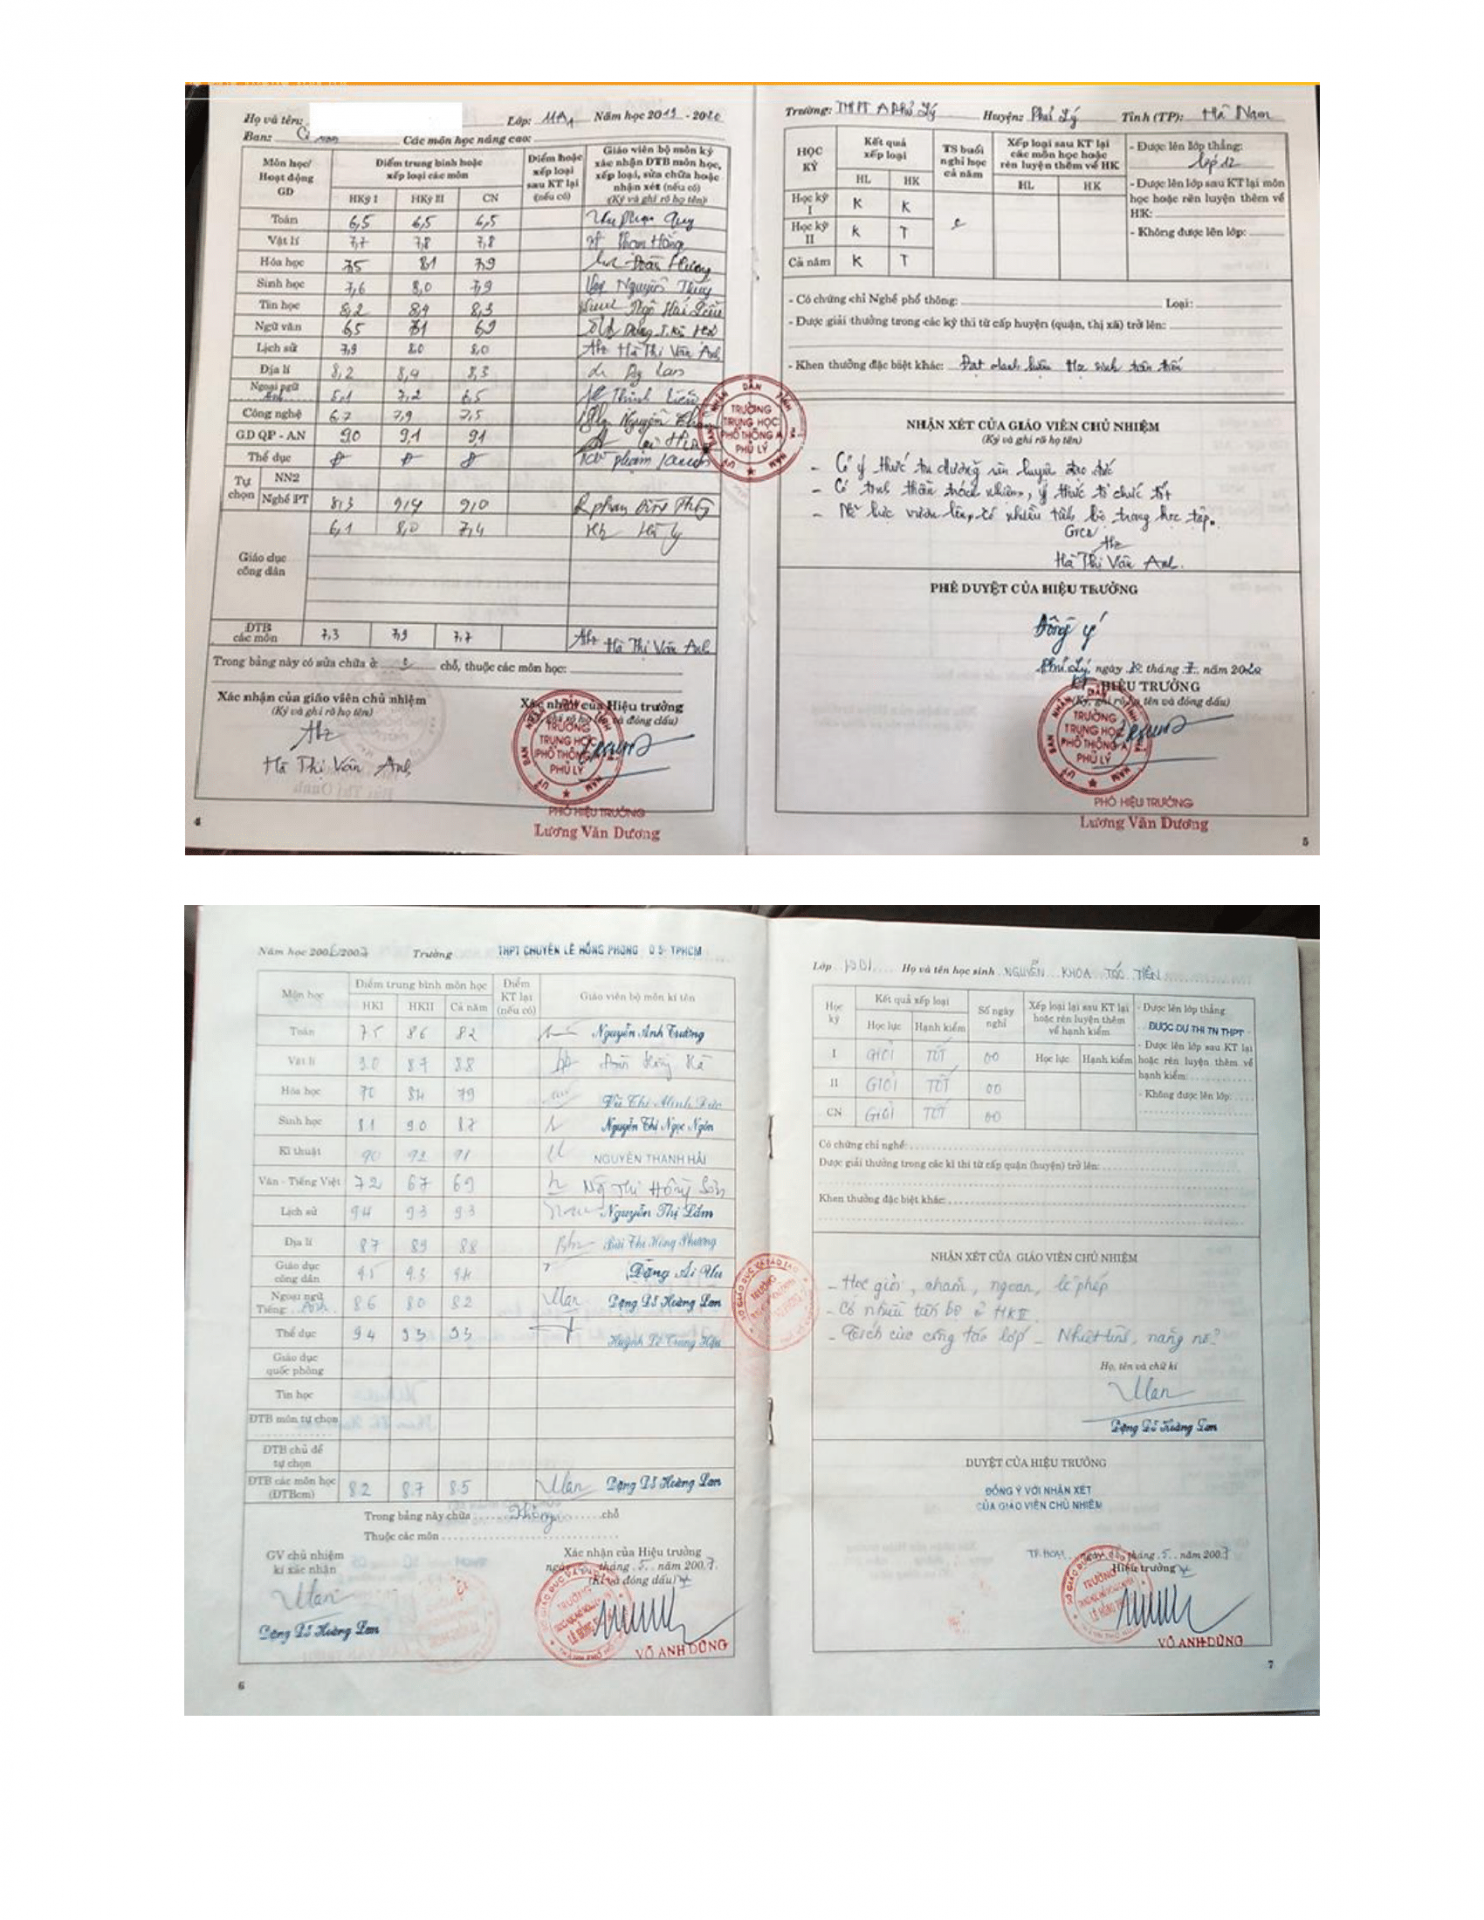 Họ và tên: Lớp: 11A1 Năm học 2019 - 2020
Ban: Cơ bản Các môn học nâng cao:
Môn học/ Hoạt động GD Điểm trung bình hoặc xếp loại các môn Điểm hoặc xếp loại sau KT lại (nếu có) Giáo viên bộ môn ký xác nhận ĐTB môn học, xếp loại, sửa chữa hoặc nhận xét (nếu có) (Ký và ghi rõ họ tên)
HKỳ I HKỳ II CN
Toán 6,5 6,5 6,5
Vật lí 7,7 7,8 7,8
Hóa học 7,5 8,1 7,9
Sinh học 7,6 8,0 7,9 Nguyễn Thúy
Tin học 8,2 8,4 8,3
Ngữ văn 6,5 7,1 6,9
Lịch sử 7,9 8,0 8,0 Hà Thị Vân Anh
Địa lí 8,2 8,4 8,3
Ngoại ngữ Anh 5,1 7,2 6,5
Công nghệ 6,7 7,9 7,5 Nguyễn
GDQP - AN 9,0 9,1 9,1
Thể dục Đ Đ Đ
Tự chọn NN2
Nghề PT 8,3 9,4 9,0
Giáo dục công dân 6,1 8,0 7,4
ĐTB các môn 7,3 7,9 7,7 Hà Thị Vân Anh
Trong bảng này có sửa chữa ở chỗ, thuộc các môn học:
Xác nhận của giáo viên chủ nhiệm
(Ký và ghi rõ họ tên)
Hà Thị Vân Anh
Xác nhận của Hiệu trưởng
(Ký, ghi rõ họ tên và đóng dấu)
TRƯỜNG TRUNG HỌC PHỔ THÔNG A PHỦ LÝ
PHÓ HIỆU TRƯỞNG
Lương Văn Dương
4
Trường: THPT A Phủ Lý Huyện: Phủ Lý Tỉnh (TP): Hà Nam
HỌC KỲ Kết quả xếp loại TS buổi nghỉ học cả năm Xếp loại sau KT lại các môn học hoặc rèn luyện thêm về HK - Được lên lớp thẳng: Lớp 12
HL HK HL HK - Được lên lớp sau KT lại môn học hoặc rèn luyện thêm về HK:
Học kỳ I K K
Học kỳ II K T - Không được lên lớp:
Cả năm K T
- Có chứng chỉ Nghề phổ thông: Loại:
- Được giải thưởng trong các kỳ thi từ cấp huyện (quận, thị xã) trở lên:
- Khen thưởng đặc biệt khác: Đạt danh hiệu Học sinh tiên tiến
TRƯỜNG TRUNG HỌC PHỔ THÔNG A PHỦ LÝ
NHẬN XÉT CỦA GIÁO VIÊN CHỦ NHIỆM
(Ký và ghi rõ họ tên)
- Có ý thức tu dưỡng rèn luyện đạo đức
- Có tinh thần trách nhiệm, ý thức tổ chức tốt
- Nỗ lực vươn lên, có nhiều tiến bộ trong học tập.
GVCN
Hà Thị Vân Anh
PHÊ DUYỆT CỦA HIỆU TRƯỞNG
Đồng ý
Phủ Lý, ngày tháng 7 năm 2020
KT HIỆU TRƯỞNG
(Ký, ghi rõ họ tên và đóng dấu)
TRƯỜNG TRUNG HỌC PHỔ THÔNG A PHỦ LÝ
PHÓ HIỆU TRƯỞNG
Lương Văn Dương
5
Năm học 2006/2007 Trường THPT CHUYÊN LÊ HỒNG PHONG Q5-TPHCM
Môn học Điểm trung bình môn học Điểm KT lại (nếu có) Giáo viên bộ môn kí tên
HKI HKII Cả năm
Toán 7.5 8.6 8.2 Nguyễn Anh Trường
Vật lí 9.0 8.7 8.8
Hóa học 7.0 8.4 7.9
Sinh học 8.1 9.0 8.7 Nguyễn Thị Ngọc Ngôn
Kĩ thuật 9.0 9.2 9.1 NGUYỄN THANH HẢI
Văn - Tiếng Việt 7.2 6.7 6.9
Lịch sử 9.4 9.3 9.3 Nguyễn Thị Lắm
Địa lí 8.7 8.9 8.8 Bùi Thị Hồng Phương
Giáo dục công dân 9.5 9.3 9.4 Đặng Ái Vu
Ngoại ngữ Tiếng Anh 8.6 8.0 8.2 Đặng Đỗ Hoàng Lan
Thể dục 9.4 9.3 9.3 Huỳnh Lê Trung Hậu
Giáo dục quốc phòng
Tin học
ĐTB môn tự chọn
ĐTB chủ đề tự chọn
ĐTB các môn học (ĐTBcm) 8.2 8.7 8.5 Đặng Đỗ Hoàng Lan
Trong bảng này chữa Không chỗ
Thuộc các môn
GV chủ nhiệm
kí xác nhận
Đặng Đỗ Hoàng Lan
Xác nhận của Hiệu trưởng
ngày tháng 5 năm 2007
(Kí và đóng dấu)
VÕ ANH DŨNG
6
Lớp Họ và tên học sinh NGUYỄN KHOA TÓC TIÊN
Học kỳ Kết quả xếp loại Số ngày nghỉ Xếp loại lại sau KT lại hoặc rèn luyện thêm về hạnh kiểm - Được lên lớp thẳng ĐƯỢC DỰ THI TN THPT
Học lực Hạnh kiểm - Được lên lớp sau KT lại hoặc rèn luyện thêm về hạnh kiểm:
I GIỎI TỐT 00 Học lực Hạnh kiểm
II GIỎI TỐT 00 - Không được lên lớp:
CN GIỎI TỐT 00
Có chứng chỉ nghề:
Được giải thưởng trong các kì thi từ cấp quận (huyện) trở lên:
Khen thưởng đặc biệt khác:
NHẬN XÉT CỦA GIÁO VIÊN CHỦ NHIỆM
- Học giỏi, chăm, ngoan, lễ phép
- Có nhiều tiến bộ ở HKII
- Tích cực công tác lớp - Nhiệt tình, năng nổ
Họ, tên và chữ kí
Đặng Đỗ Hoàng Lan
DUYỆT CỦA HIỆU TRƯỞNG
ĐỒNG Ý VỚI NHẬN XÉT
CỦA GIÁO VIÊN CHỦ NHIỆM
TP.HCM, ngày tháng 5 năm 2007
Hiệu trưởng
VÕ ANH DŨNG
7